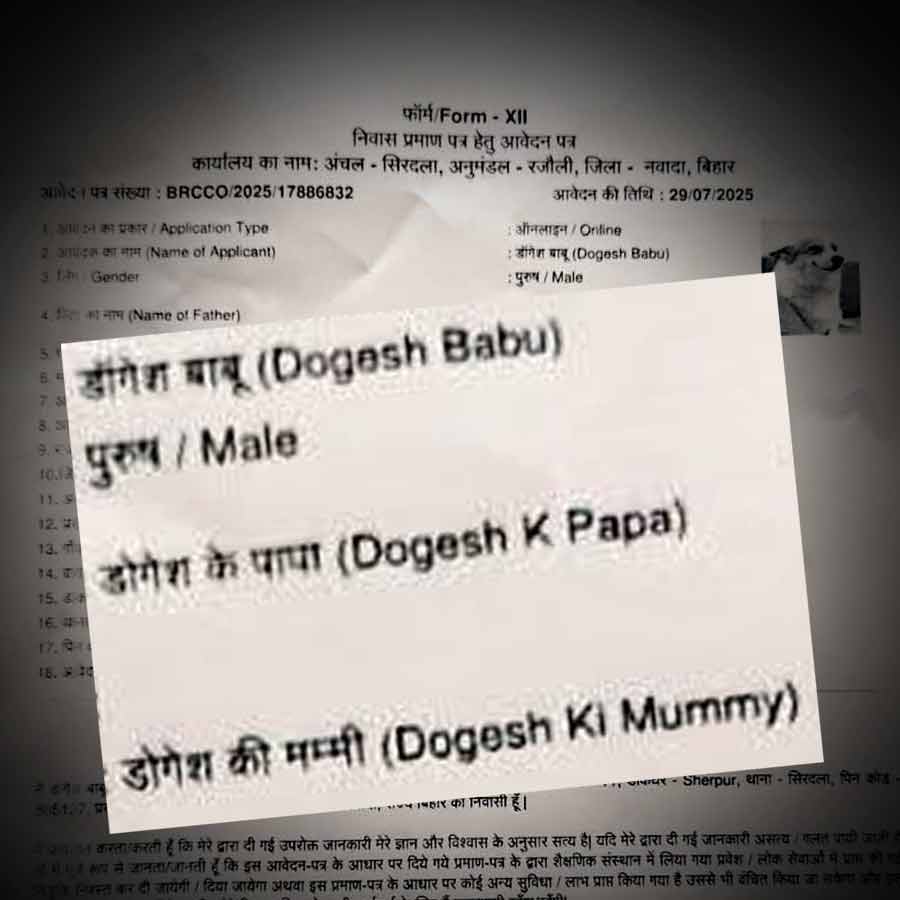 फॉर्म/Form - XII
निवास प्रमाण पत्र हेतु आवेदन पत्र
कार्यालय का नाम: अंचल - सिरदला, अनुमंडल - रजौली, जिला - नवादा, बिहार
आवेदन पत्र संख्या : BRCCO/2025/17886832 आवेदन की तिथि : 29/07/2025
1. आवेदन का प्रकार / Application Type : ऑनलाइन / Online
2. आवेदक का नाम (Name of Applicant) : डॉगेश बाबू (Dogesh Babu)
3. लिंग / Gender : पुरुष / Male
4. पिता का नाम (Name of Father)
5.
6.
7.
8.
9.
10.
11.
12.
13.
14.
15.
16.
17.
18.
डॉगेश बाबू (Dogesh Babu)
पुरुष / Male
डोगेश के पापा (Dogesh K Papa)
डोगेश की मम्मी (Dogesh Ki Mummy)
- Sherpur, थाना - सिरदला, पिन कोड -
राज्य बिहार का निवासी हूँ|
करता/करती हूँ कि मेरे द्वारा दी गई उपरोक्त जानकारी मेरे ज्ञान और विश्वास के अनुसार सत्य है| यदि मेरे द्वारा दी गई जानकारी असत्य / गलत पायी
रूप से जानता/जानती हूँ कि इस आवेदन-पत्र के आधार पर दिये गये प्रमाण-पत्र के द्वारा शैक्षणिक संस्थान में लिया गया प्रवेश / लोक सेवाओं में प्राप्त
कर दी जायेगी / दिया जायेगा अथवा इस प्रमाण-पत्र के आधार पर कोई अन्य सुविधा / लाभ प्राप्त किया गया है उससे भी वंचित किया जा सकेगा और